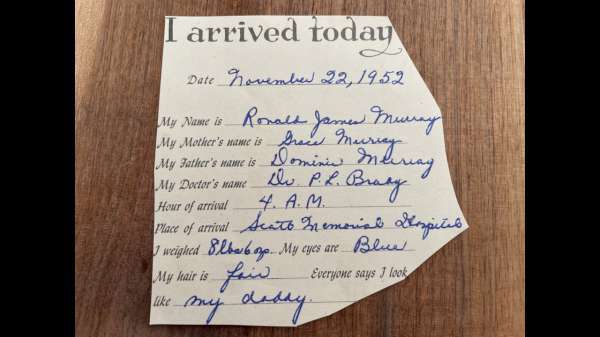 I arrived today
Date November 22, 1952
My Name is Ronald James Murray
My Mother's name is Grace Murray
My Father's name is Dominic Murray
My Doctor's name Dr. P. L. Brady
Hour of arrival 4. A.M.
Place of arrival Scott Memorial Hospital
I weighed 8lbs6oz. My eyes are Blue
My hair is fair Everyone says I look
like my daddy.